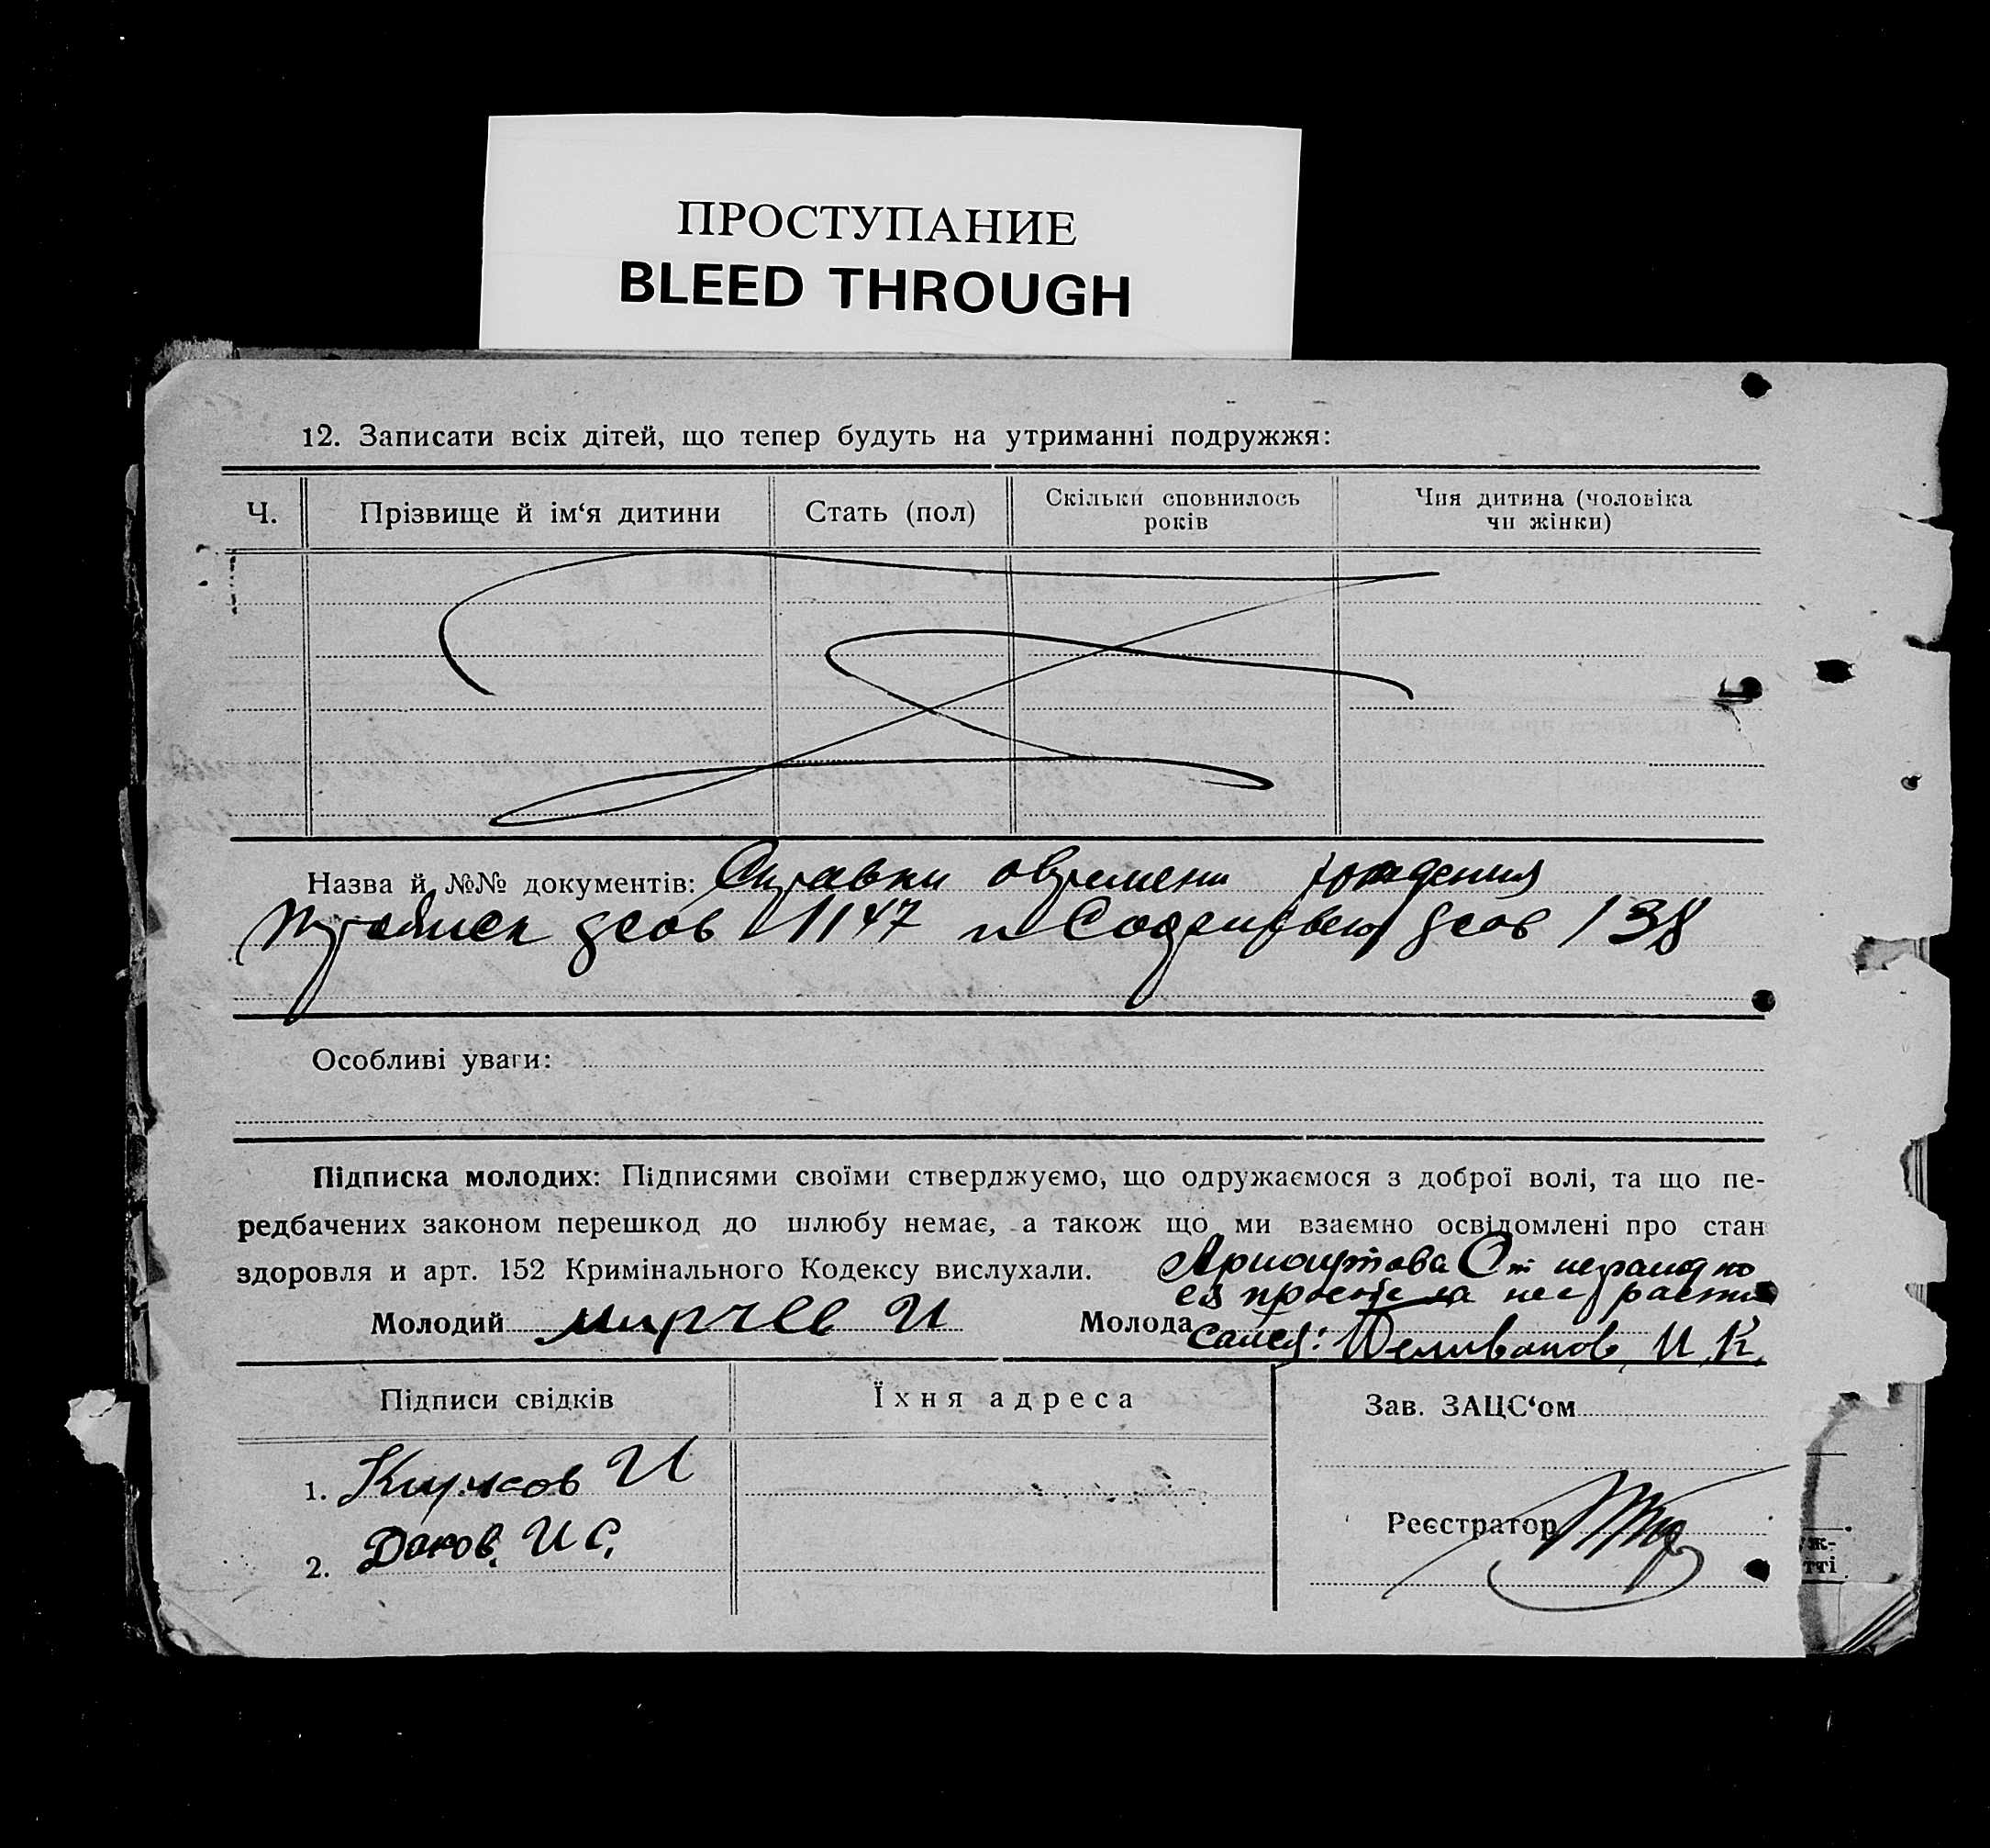 ПРОСТУПАНИЕ
BLEED THROUGH
12. Записати всіх дітей, що тепер будуть на утриманні подружжя:
Ч. Прізвище й ім‘я дитини Стать (пол) Скільки сповнилось років Чия дитина (чоловіка чи жінки)
Назва й №№ документів: Справки о времени рождения
1147 и 138
Особливі уваги:
Підписка молодих: Підписями своїми стверджуємо, що одружаємося з доброї волі, та що пе-
редбачених законом перешкод до шлюбу немає, а також що ми взаємно освідомлені про стан
здоровля и арт. 152 Кримінального Кодексу вислухали.
Арнаутова С неграмотно
ея просьбе за нее распи
Молодий мирчев И Молода
сался: Деливанов И. К.
Підписи свідків Їхня адреса Зав. ЗАЦС‘ом
1. Курчов И
Реєстратор
2. Даков. И С.
уж-
тті